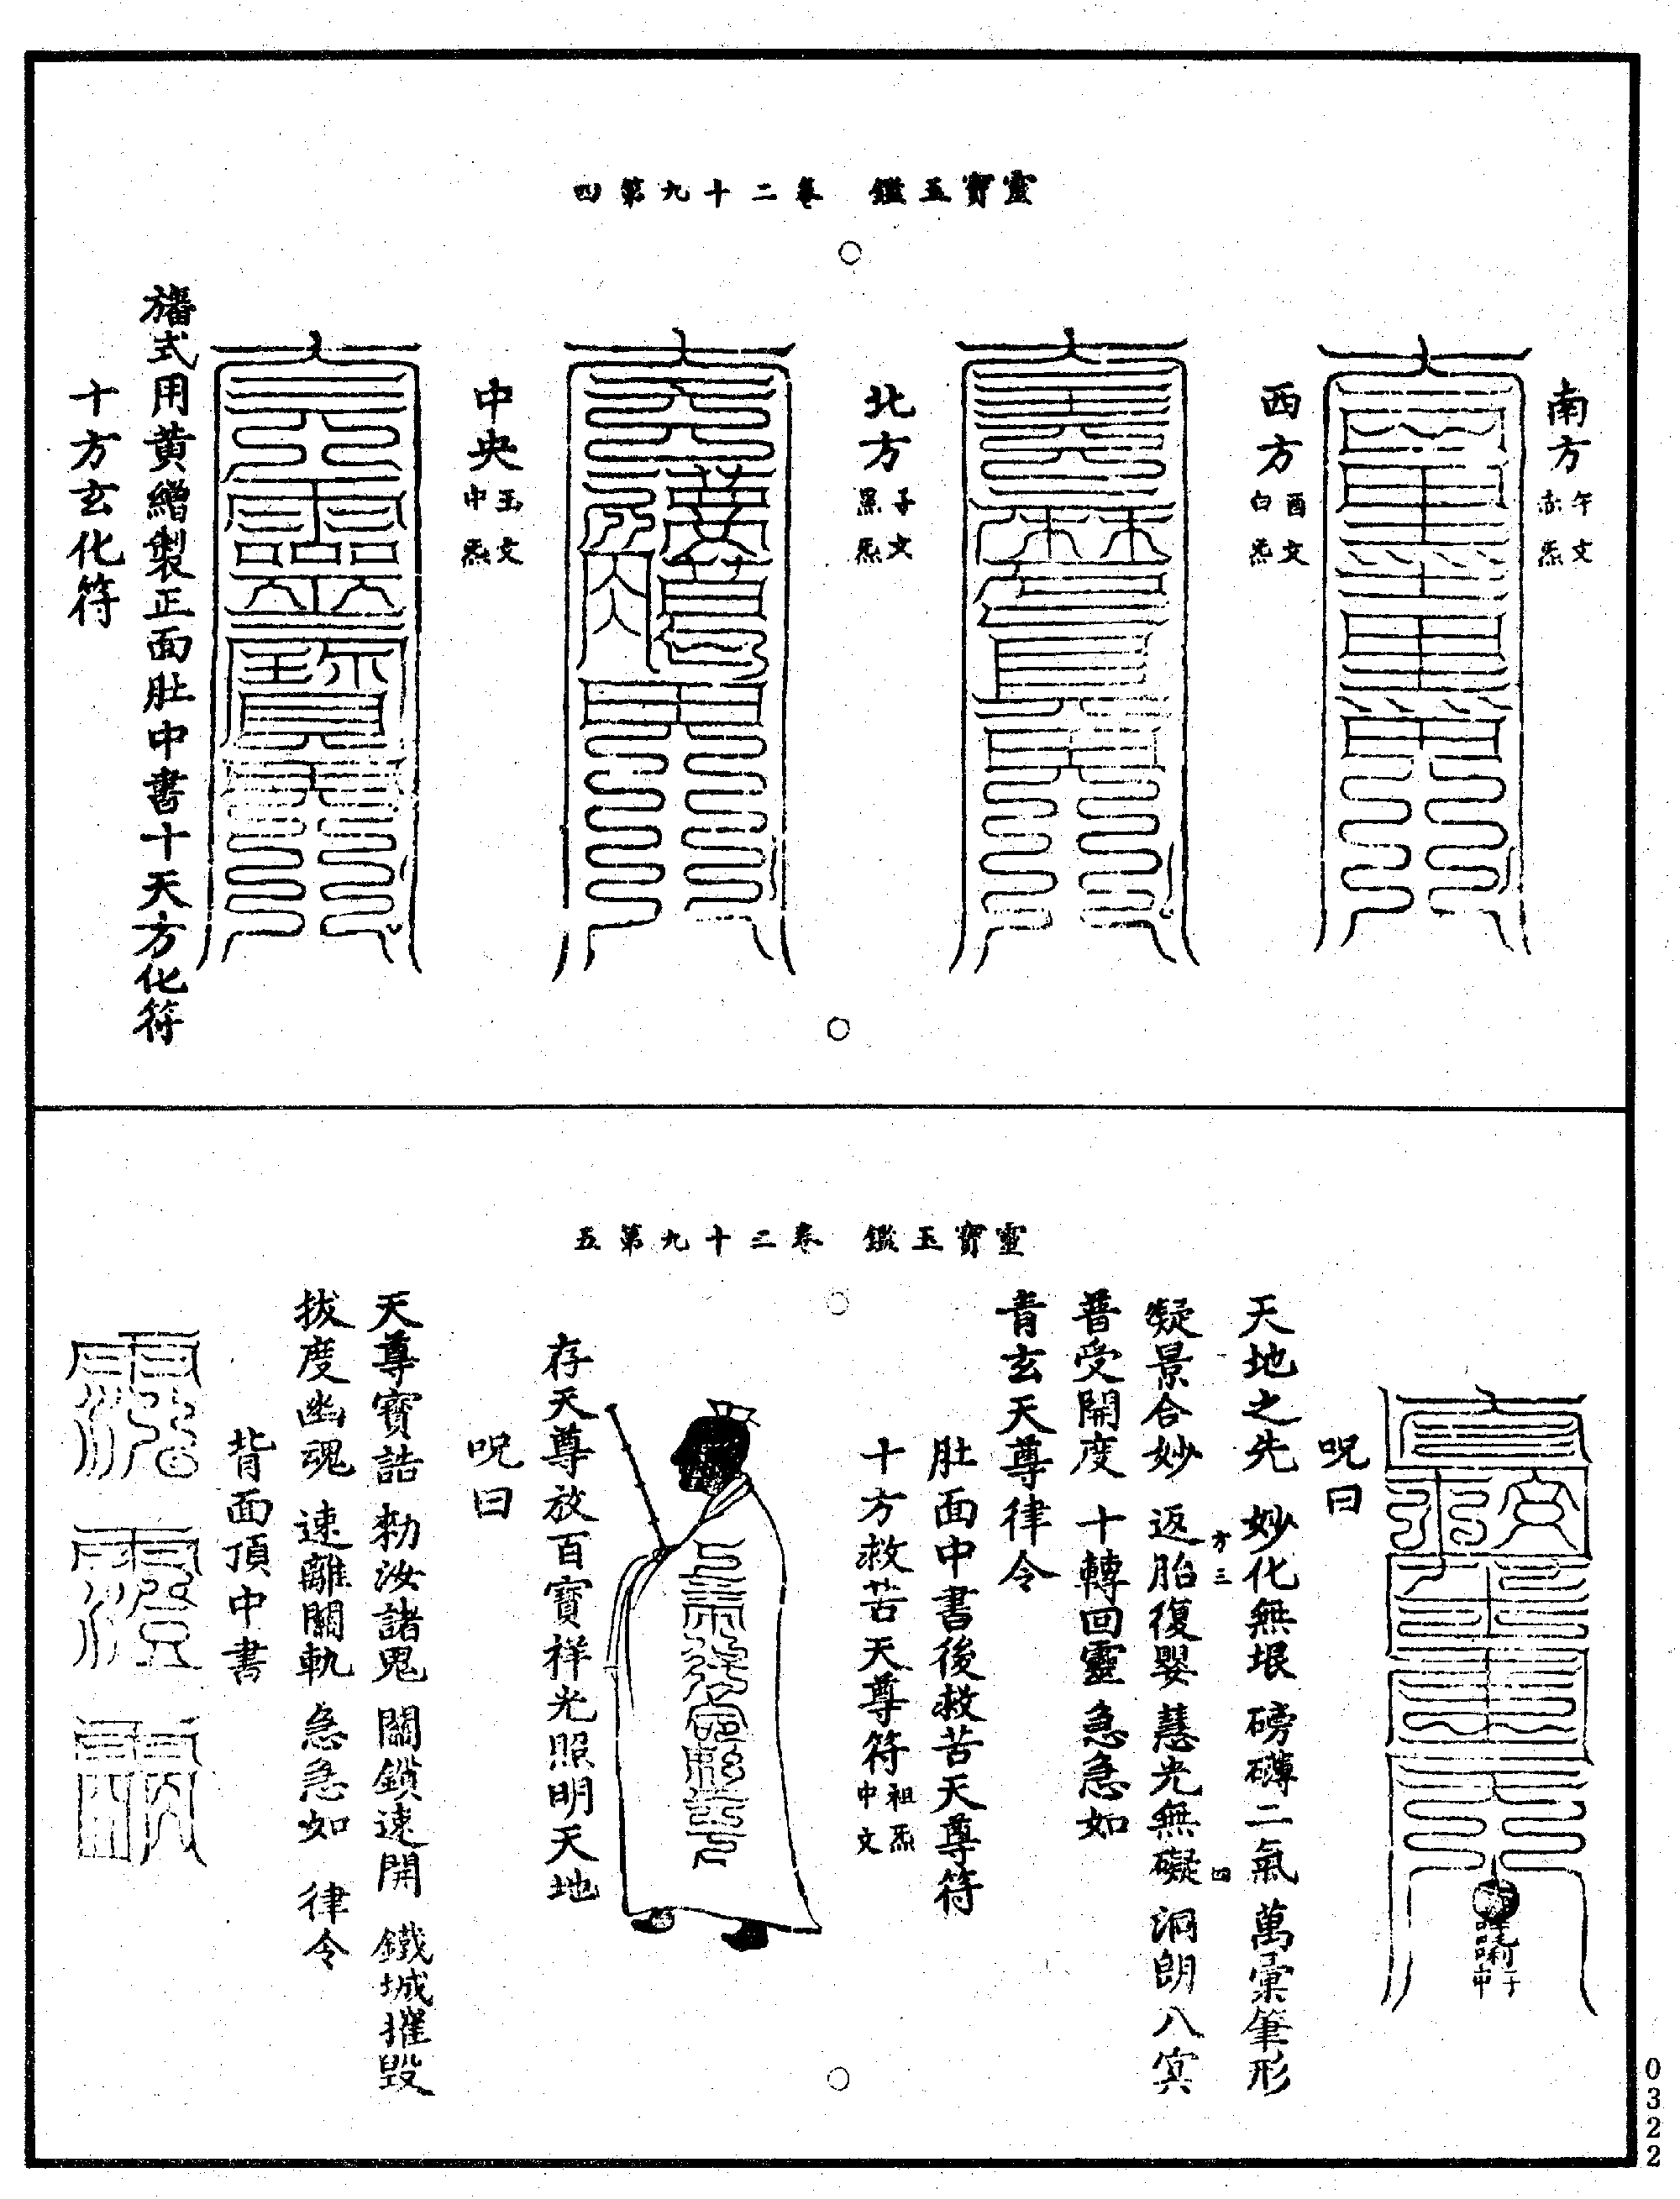 靈寶玉鑑 卷二十九第四
南方 午文 赤炁
西方 酉文 白炁
北方 子文 黑炁
中央 玉文 中炁
旛式用黄繒製正面肚中書十天方化符
十方玄化符
靈寶玉鑑 卷二十九第五
呪曰
天地之先 妙化無垠 磅礴二氣 萬彙肇形
方三 四
凝景合妙 返胎復嬰 慧光無礙 洞朗八冥
普受開度 十轉回靈 急急如
青玄天尊律令
肚面中書後救苦天尊符
十方救苦天尊符 祖炁 中文
存天尊放百寶祥光照明天地
呪曰
天尊寶誥 勑汝諸鬼 關鎖速開 鐵城摧毀
拔度幽魂 速離關軌 急急如 律令
背面頂中書
0322